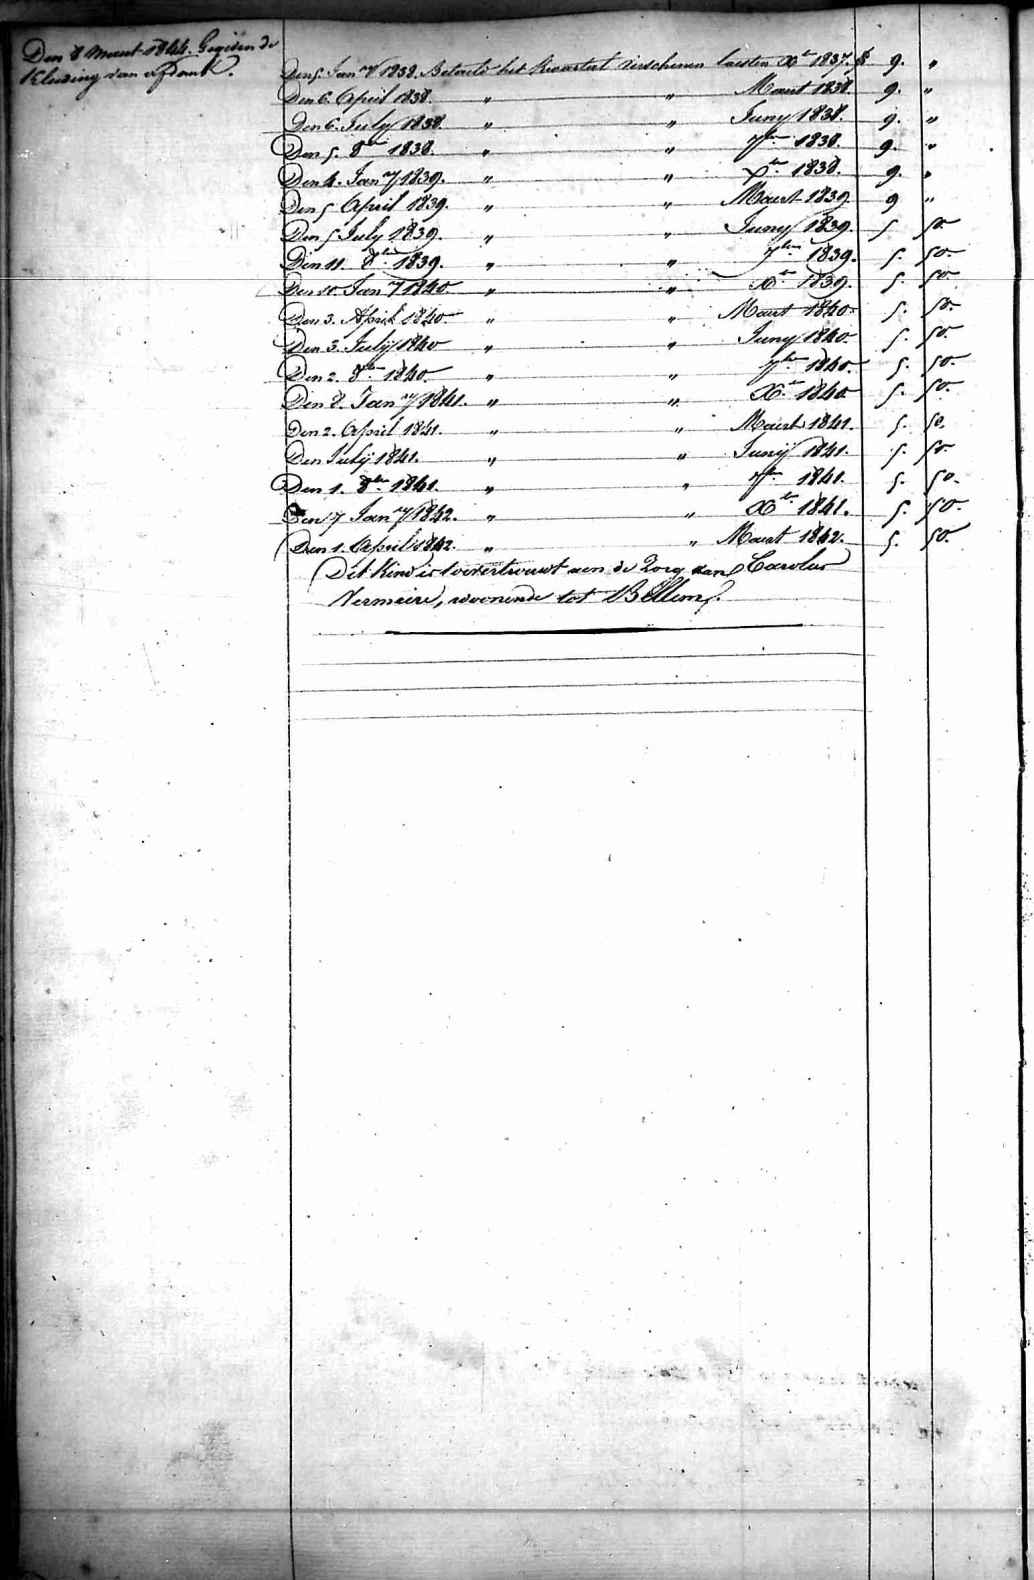 Den 8 Maert 1844. Gegeven de
Kleding van afdank.
Den 5. Jan.ry 1838. Betaeld het Kwartael verschenen laesten Xbr 1837. f 9. "
Den 6. April 1838. " " Maert 1838. 9. "
Den 6. July 1838. " " Juny 1838. 9. "
Den 5. 8bre 1838. " " 7bre 1838. 9. "
Den 4. Jan.ry 1839. " " Xbre 1838. 9. "
Den 5 April 1839. " " Maert 1839 9 "
Den 5 July 1839. " " Juny 1839. 5 50.
Den 11. 8bre 1839. " " 7bre 1839. 5. 50.
Den 10. Jan.ry 1840. " " Xbre 1839. 5. 50.
Den 3. April 1840. " " Maert 1840. 5. 50.
Den 3. July 1840 " " Juny 1840. 5. 50.
Den 2. 8bre 1840. " " 7bre 1840. 5. 50.
Den 8. Jan.ry 1841. " " Xbre 1840 5. 50.
Den 2. April 1841. " " Maert 1841. 5. 50.
Den July 1841. " " Juny 1841. 5. 50.
Den 1. 8bre 1841. " " 7bre 1841. 5. 50.
Den 7 Jan.ry 1842. " " Xbre 1841. 5. 50.
Den 1. April 1842. " " Maert 1842. 5. 50.
Dit Kind is toevertrouwt aen de Zorg van Carolus
Vermeire, woonende tot Bellem.